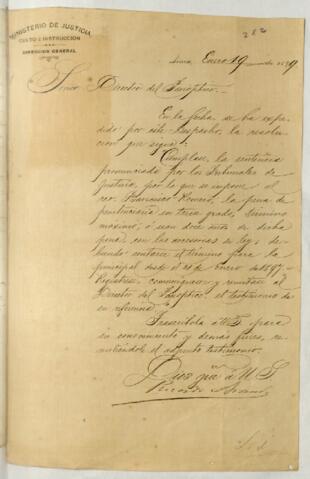 MINISTERIO DE JUSTICIA,
CULTO E INSTRUCCION
DIRECCION GENERAL
282
Lima, Enero 19 de 1899
Señor Director del Panóptico.
En la fecha se ha expe-
dido por este Despacho, la resolu-
cion que sigue:
"Cúmplase la sentencia
pronunciada por los Tribunales de
Justicia, por la que se impone al
reo, Francisco Romero, la pena de
penitenciaría en tercer grado, término
máximo, ó sean doce años de dicha
pena, con las accesorias de ley, de-
biendo contarse el término para la
principal desde el 21 de Enero de 1897.-
Regístrese, comuníquese y remítase al
Director del Panóptico, el testimonio de
su referencia"
Trascríbola á US. para
su conocimiento y demás fines, re-
mitiéndole el adjunto testimonio.
Dios gue. á U.S.
Ricardo